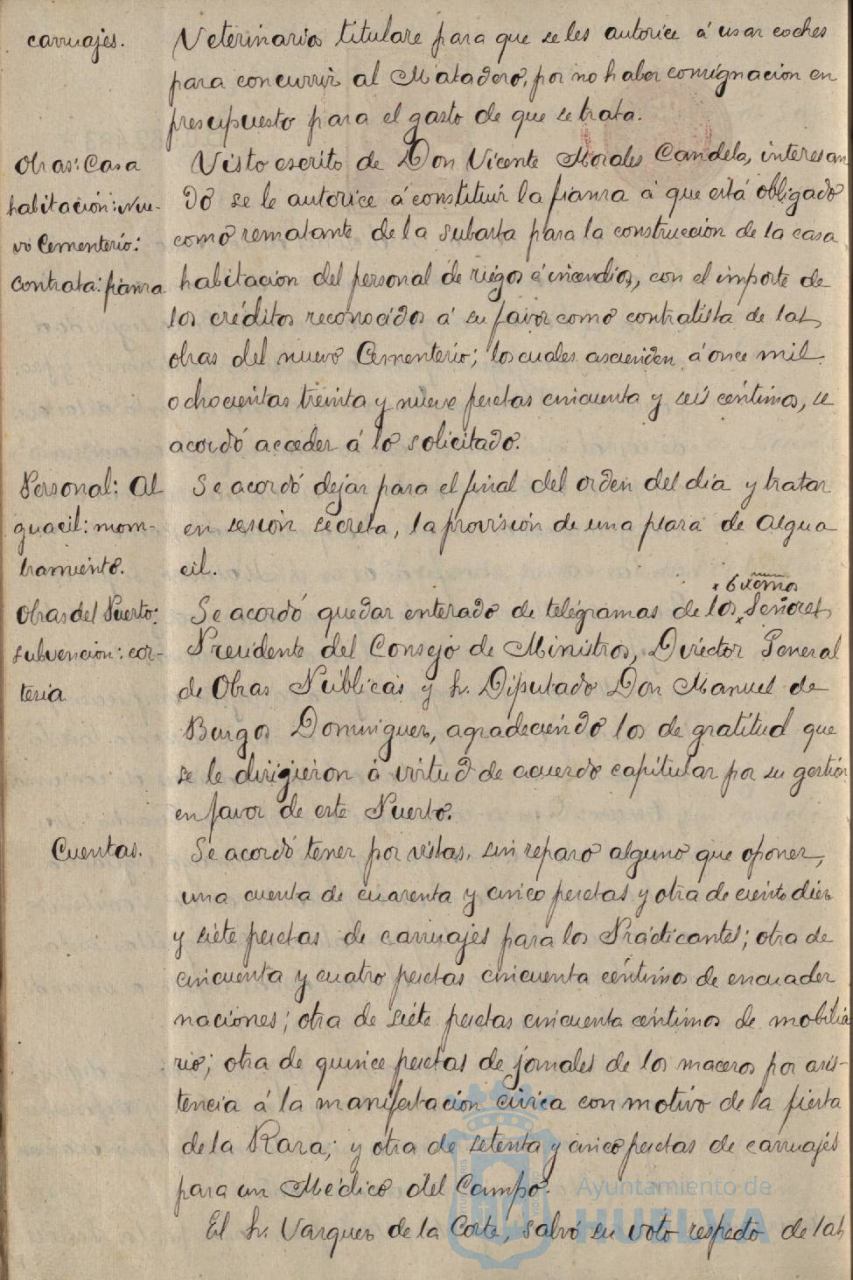 carruajes.
Veterinarios titulare para que se les autorice á usar coches
para concurrir al Matadero, por no haber consignacion en
presupuesto para el gasto de que se trata.
Obras: Casa
habitación: Nue-
vo Cementerio:
contrata: fianza
Visto escrito de Don Vicente Morales Candela, interesan
do se le autorice á constituir la fianza á que está obligado
como rematante de la subasta para la construccion de la casa
habitacion del personal de riegos é incendios, con el importe de
los créditos reconocidos á su favor como contratista de las
obras del nuevo Cementerio; los cuales ascienden á once mil
ochocientas treinta y nueve pesetas cincuenta y seis céntimos, se
acordó acceder á lo solicitado.
Personal: Al
guacil: nom-
bramiento.
Se acordó dejar para el final del orden del dia y tratar
en sesión secreta, la provisión de una plaza de Algua
cil.
Obras del Puerto:
subvencion: cor-
tesia
Excmos
Se acordó quedar enterado de telégramas de los Señores
Presidente del Consejo de Ministros, Director General
de Obras Públicas y Sr. Diputado Don Manuel de
Burgos Dominguez, agradeciendo los de gratitud que
se le dirigieron á virtud de acuerdo capitular por su gestión
en favor de este Puerto.
Cuentas.
Se acordó tener por vistas, sin reparo alguno que oponer,
una cuenta de cuarenta y cinco pesetas y otra de ciento diez
y siete pesetas de carruajes para los Practicantes; otra de
cincuenta y cuatro pesetas cincuenta céntimos de encuader
naciones; otra de siete pesetas cincuenta céntimos de mobilia
rio; otra de quince pesetas de jornales de los maceros por asis-
tencia á la manifestacion civica con motivo de la fiesta
de la Raza; y otra de setenta y cinco pesetas de carruajes
para un Médico del Campo.
El Sr. Vazquez de la Corte, salvó su voto respecto de las
Ayuntamiento de
HUELVA